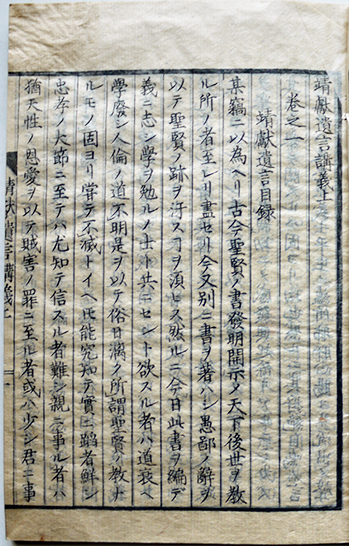 靖献遺言講義上
卷之一
靖献遺言目録
某竊ニ以為ヘリ古今聖賢ノ書發明開示ノ天下後世ヲ教
ル所ノ者至レリ盡セリ今又別ニ書ヲ著ハシ愚鄙ノ辞ヲ
以テ聖賢ノ跡ヲ汙スヿヲ須ヒス然ルニ今日此書ヲ編テ
義ニ志シ學ヲ勉ルノ士ト共ニセント欲スル者ハ道衰ヘ
學廃シ人倫ノ道不明是ヲ以テ俗日ニ漓ク所謂聖賢ノ教ナ
ルモノ固ヨリ嘗テ不滅トイヘ𪜈能究知テ實ニ蹈者鮮シ
忠孝ノ大節ニ至テハ尤知テ信スル者難シ親ニ事ル者ハ
猶天性ノ恩愛ヲ以テ賊害ノ罪ニ至ル者或ハ少シ君ニ事
靖献遺言講義上
一